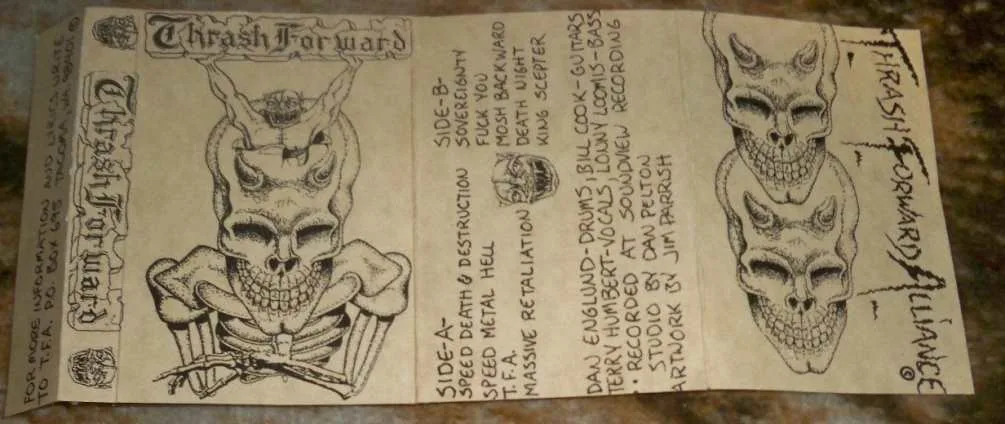 FOR MORE INFORMATION AND LYRICS WRITE
TO T.F.A. P.O. BOX 695 TACOMA, WA 98401 ©
Thrash Forward
Thrash Forward
SIDE-A-
SPEED DEATH & DESTRUCTION
SPEED METAL HELL
T.F.A.
MASSIVE RETALIATION
SIDE-B-
SOVEREIGNTY
FUCK YOU
MOSH BACKWARD
DEATH NIGHT
KING SCEPTER
DAN ENGLUND-DRUMS, BILL COOK-GUITARS
TERRY HUMBERT-VOCALS, LONNY LOOMIS-BASS
• RECORDED AT SOUNDVIEW RECORDING
STUDIO BY DAN PELTON
ARTWORK BY JIM PARRISH
THRASH FORWARD ALLIANCE ©